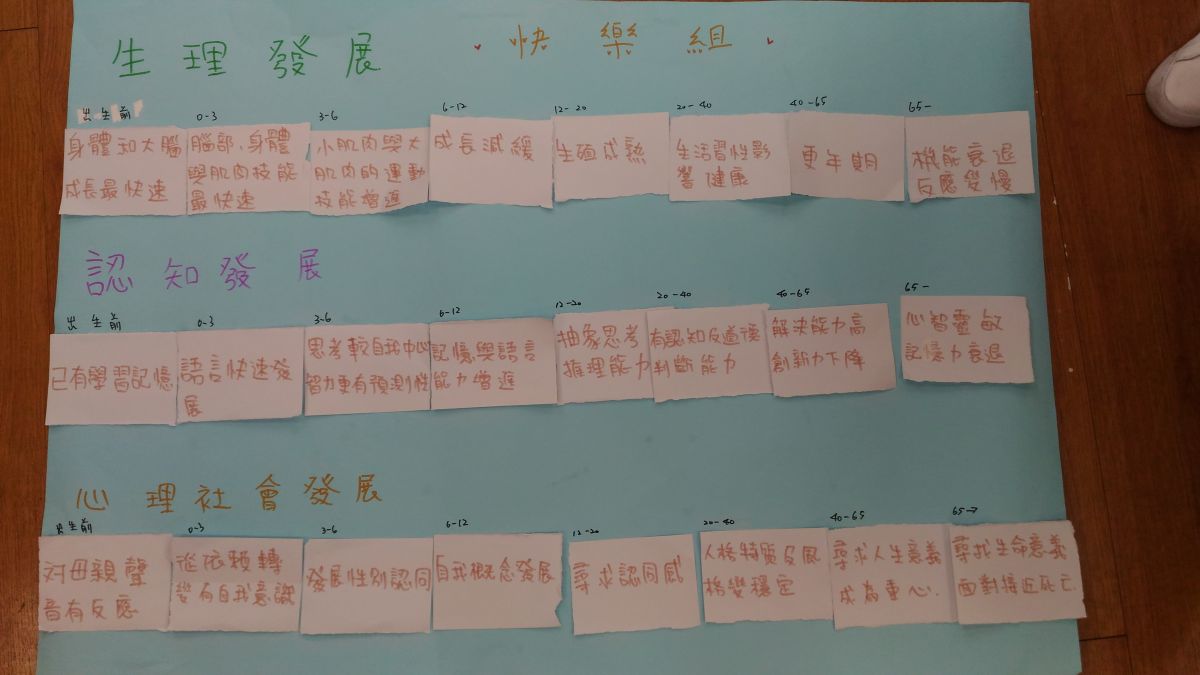 生理發展
快樂組
出生前
0-3
3-6
6-12
12-20
20-40
40-65
65-
身體和大腦
成長最快速
腦部、身體
與肌肉技能
最快速
小肌肉與大
肌肉的運動
技能增進
成長減緩
生殖成熟
生活習性影
響健康
更年期
機能衰退
反應變慢
認知發展
出生前
0-3
3-6
6-12
12-20
20-40
40-65
65-
已有學習記憶
語言快速發
展
思考較自我中心
智力更有預測性
記憶與語言
能力增進
抽象思考
推理能力
有認知及道德
判斷能力
解決能力高
創新力下降
心智靈敏
記憶力衰退
心理社會發展
出生前
0-3
3-6
6-12
12-20
20-40
40-65
65→
对母親聲
音有反應
從依賴轉
變有自我意識
發展性別認同
自我概念發展
尋求認同感
人格特質及風
格變穩定
尋求人生意義
成為重心.
尋找生命意義
面對接近死亡.